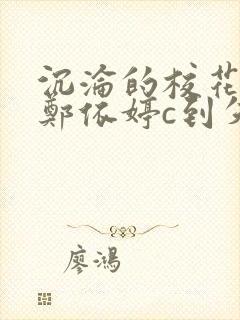 沉淪的校花
鄭依婷c到
廖鴻